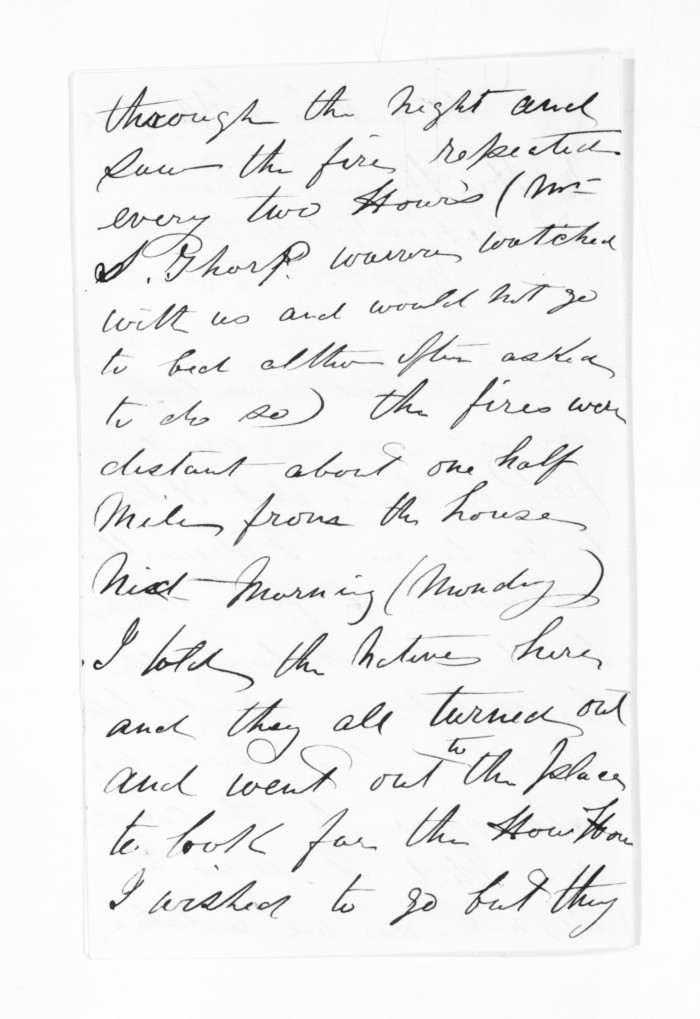 through the night and
saw the fires repeated
every two Hours (Mr
S. Thorp. watched
with us and would not go
to bed altho often asked
to do so) the fires were
distant about one half
Mile from the house
Next Morning (Monday)
I told the Natives here
and they all turned out
and went out to the place
to look for the Hou Hou
I wished to go but they